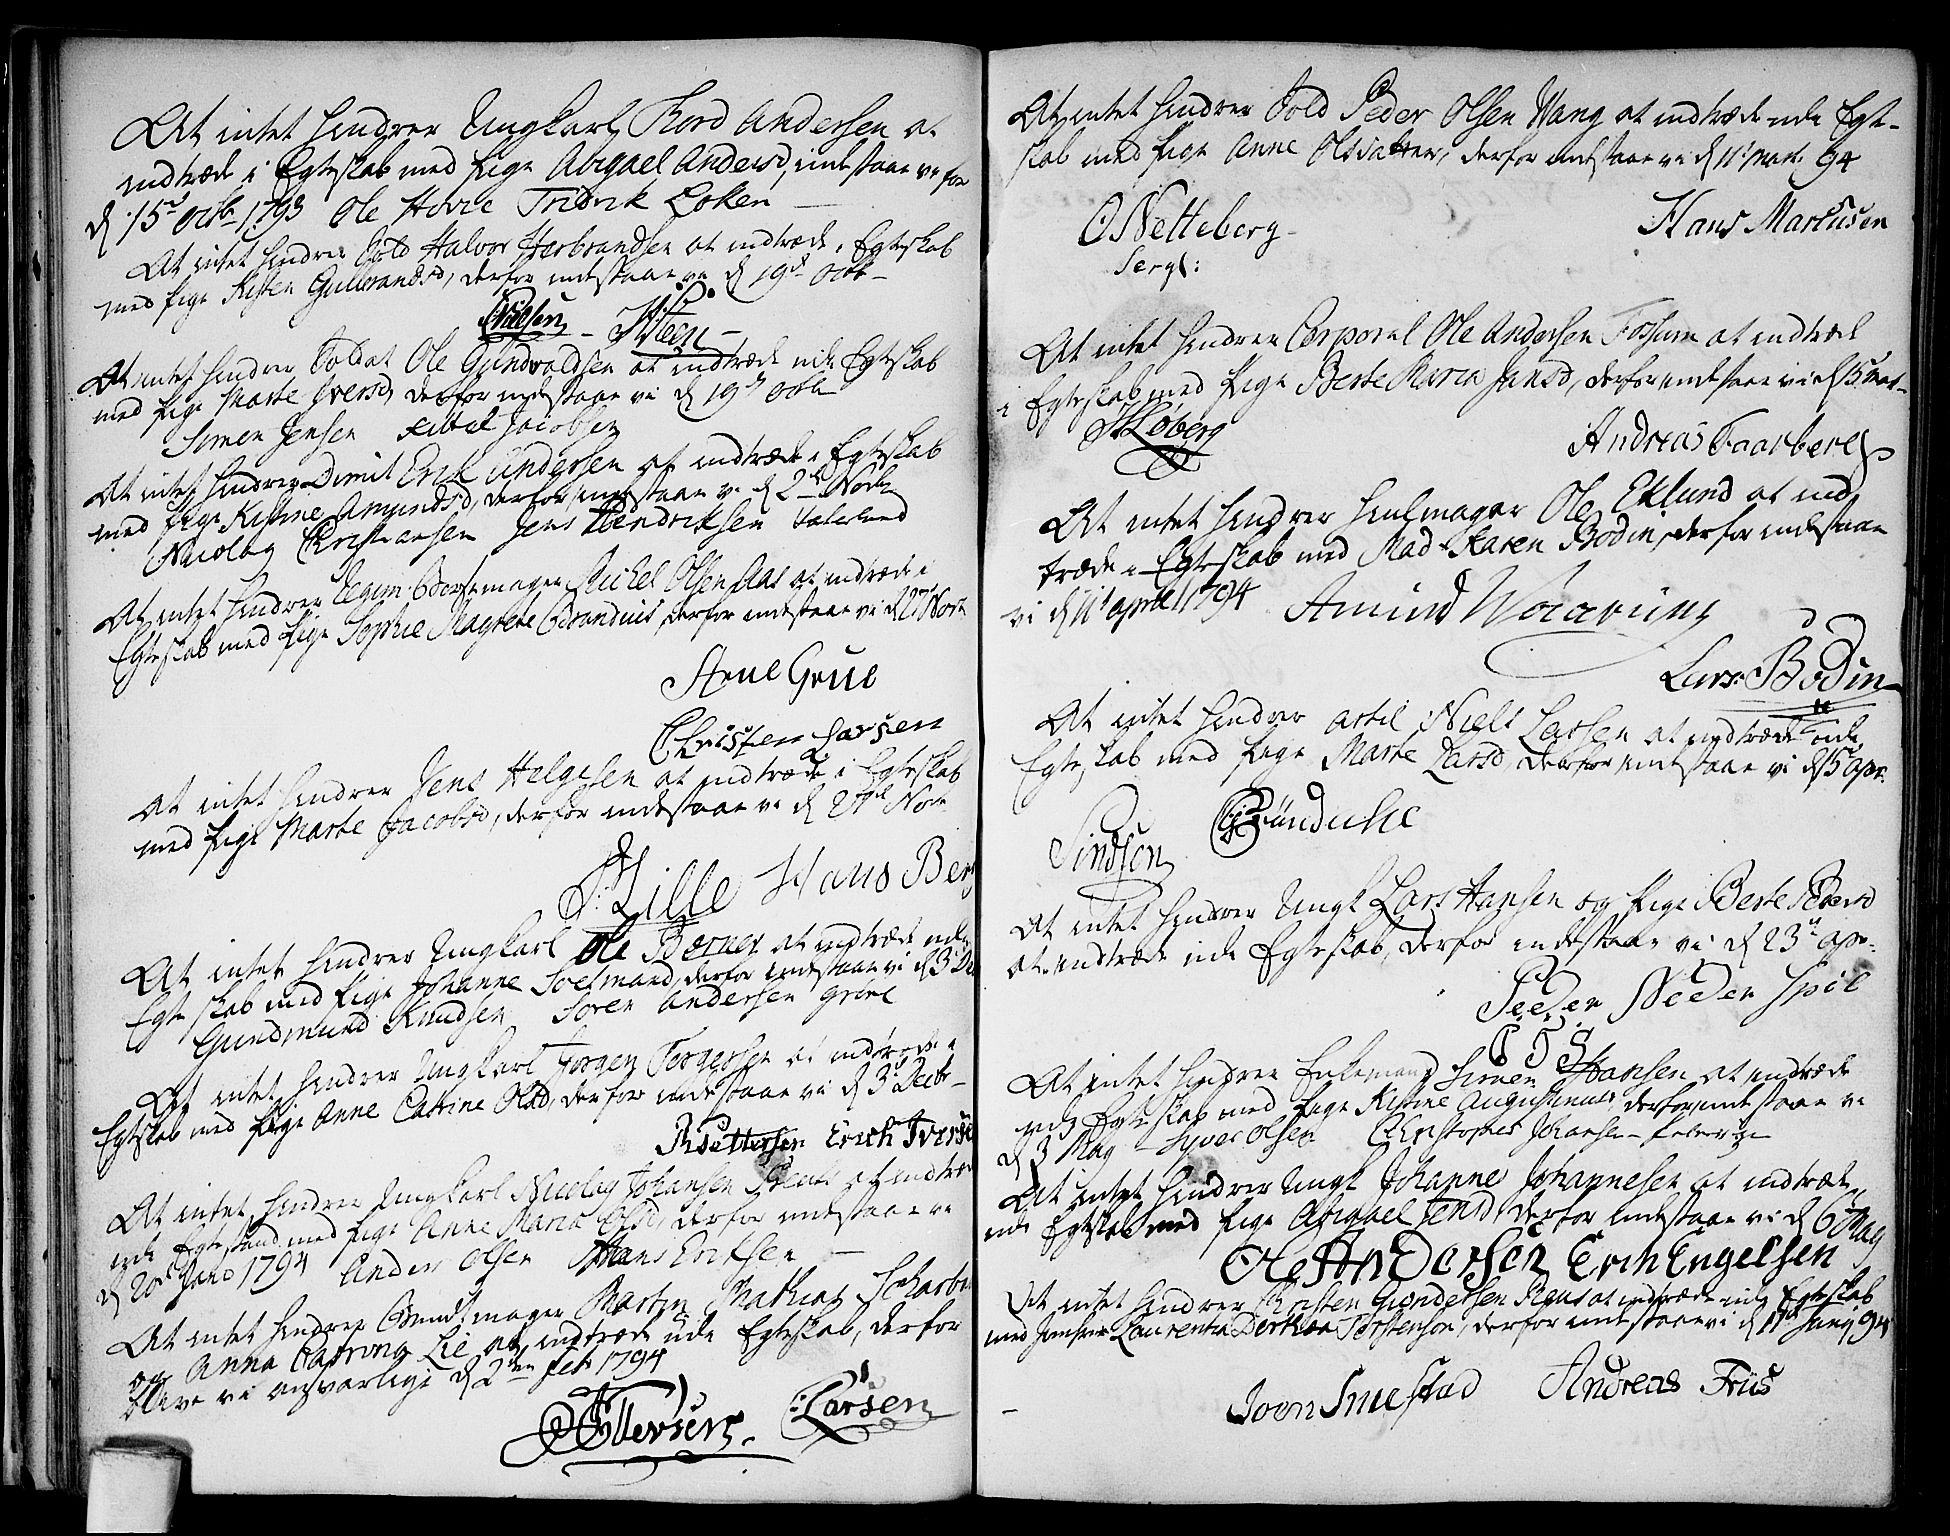 At intet hindrer Ungkarl Thord Andersen at
indtræde i Egteskab med Pige Abigael Andersd, indestaar vi for
d 15de octb 1793 Ole Hovie Fridrik Løken
At intet hindrer Sold Halvor Herbrandsen at indtræde i Egteskab
med Pige Kisten Gulbrandsd, derfor indestaar vi d 19de octb
Nielsen Steen
At intet hindrer Soldat Ole Gundvoldsen at indtræde udi Egteskab
med Pige Marte Iversd, derfor indestaar vi d 19de octb
Simen Jensen Jacobsen
At intet hindrer Dimit Erik Andersen at indtræde i Egteskab
med Pige Kistine Amundsd, derfor indestaar vi d 2de Novb
Nicolay Christiansen Jens Hendriksen Vaterland
At intet hindrer Børsemager Michel Olsen Aas at indtræde i
Egteskab med Pige Sophie Magrete Brandius, derfor indestaar vi d 27 Novb
Arne Grue
Christen Larsen
At intet hindrer Jens Helgesen at indtræde i Egteskab
med Pige Marte Jacobsd, derfor indestaar vi d 29de Nov
P: Lille Hans Ber
At intet hindrer Ungkarl Ole Berner at indtræde udi
Egteskab med Pige Johanne Soelmand, derfor indestaar vi d 3de De
Gundmund Knudsen Søren Andersen Grine
At intet hindrer Ungkarl Jørgen Torgersen at indtræde i
Egteskab med Pige Anne Catrine Olsd, derfor indestaar vi d 3de Decbr
Pettersen Erich Iverse
At intet hindrer Ungkarl Nicolay Johansen at indtræ
udi Egtestand med Pige Anne Maria Olsd, derfor indestaar vi
d 20de Janv 1794 Ander Olsen Hans Eriksen
At intet hindrer Bundtmager Martin Mathias Scharbo
og Anna Lie at indtræde udi Egteskab, derfor
blive vi ansvarlige d 2den Feb 1794
P Ellevsen C: Larsen
At intet hindrer Sold Peder Olsen Wang at indtræde udi Egte-
skab med Pige Anne Olsdatter, derfor indestaar vi d 11te mart 94
O Netteberg Hans Marcusen
Serg:
At intet hindrer Corporal Ole Andersen Fossum at indtræde
i Egteskab med Pige Berte Maria Jansd, derfor indestaar vi d 15 mar
Løberg Andreas Faarberg
At intet hindrer Hiulmager Ole Eklund at ind
træde i Egteskab med Mad Karen Bodin, derfor indestaar
vi d 11te april 1794 Amund
Lars: Bodin
At intet hindrer artil Niels Larsen at indtræde udi
Egteskab med Pige Marte Larsd, derfor indestaar vi d 15 apr:
Sindsen Gründuhe
At intet hindrer Ungk Lars Hansen og Pige Berte Pedersd
at indtræde udi Egteskab, derfor indestaar vi d 23de apr:
Peder Peder
P S S
At intet hindrer Enkemand Simen Hansen at indtræde
udi Egteskab med Pige Kistine Augustinus, derfor indestaar vi
d 3 May Syver Olsen Christopher Johansen
At intet hindrer Ungk Johanne Johannesen at indtræde
udi Egteskab med Pige Abigael Jensd, derfor indestaar vi d 6 May
Ole Andersen Erich Engelsen
At intet hindrer Christen Gundersen at indtræde udi Egteskab
med Jomfrue Laurentia Dorthea Torstenson, derfor indestaar vi d 11te Juny 94
Joon Smestad Andreas Friis